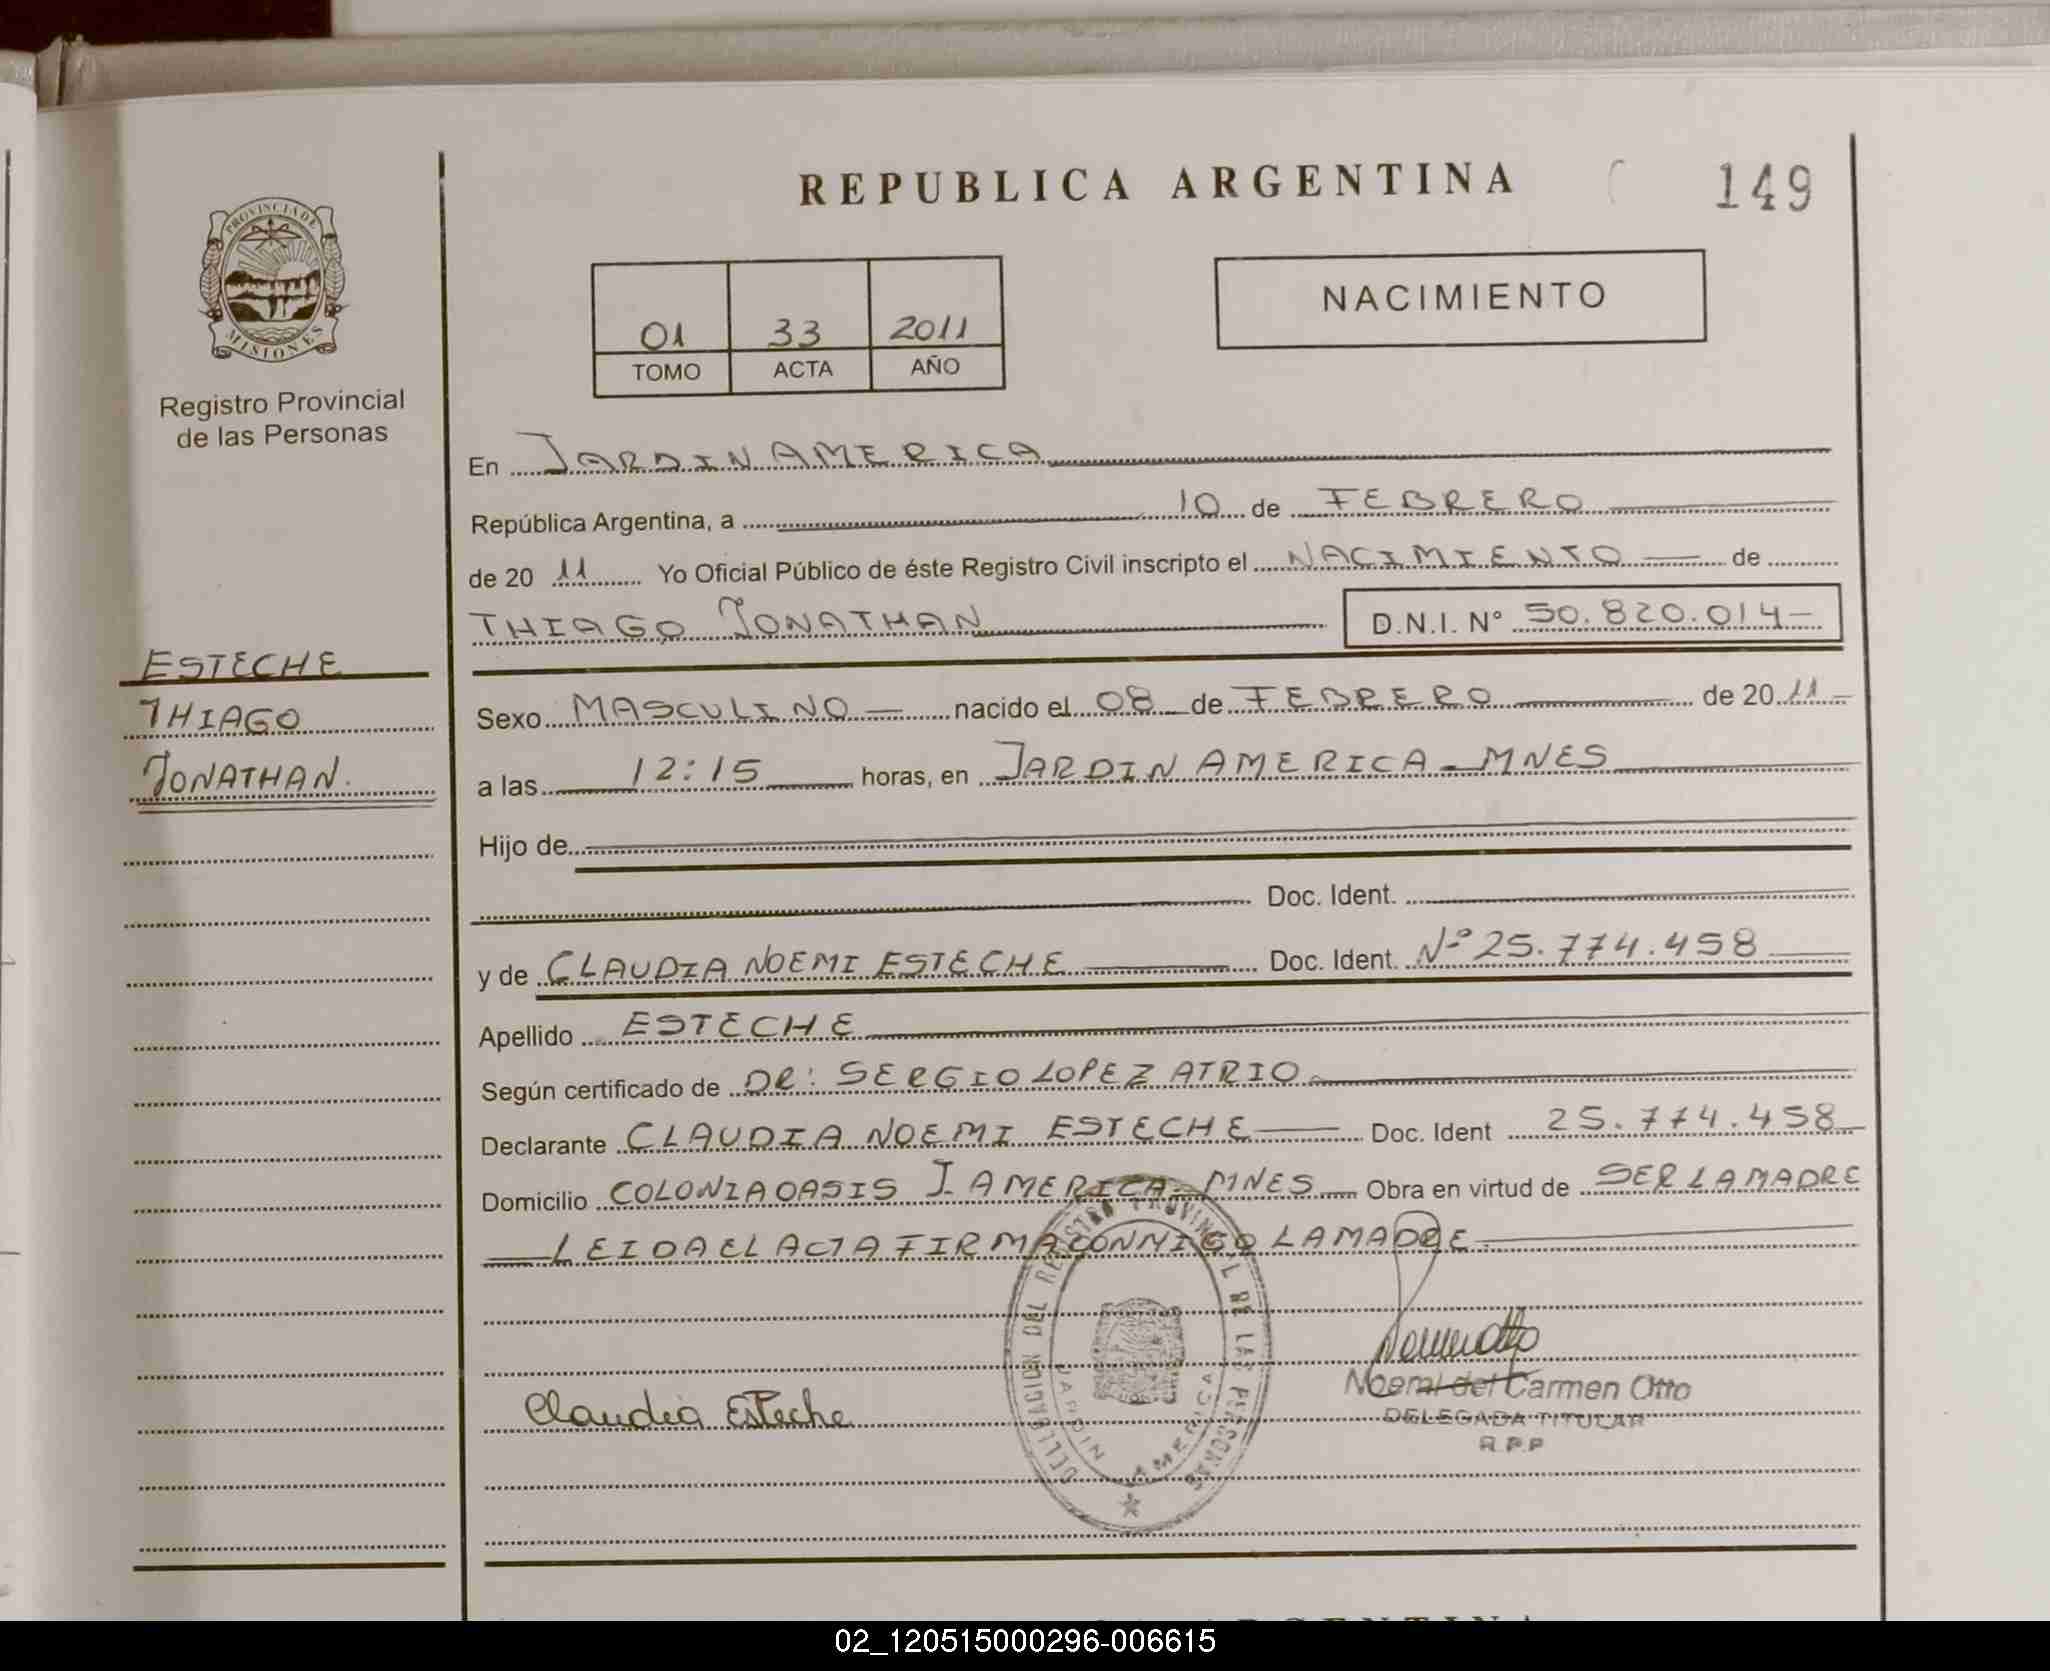 REPUBLICA ARGENTINA
149
PROVINCIA DE
MISIONES
Registro Provincial
de las Personas
01 33 2011
TOMO ACTA AÑO
NACIMIENTO
En JARDIN AMERICA
República Argentina, a 10 de FEBRERO
de 20 11 Yo Oficial Público de éste Registro Civil inscripto el NACIMIENTO de
THIAGO JONATHAN D.N.I. N° 50.820.014-
ESTECHE
THIAGO
JONATHAN.
Sexo MASCULINO nacido el 08 de FEBRERO de 20 11
a las 12:15 horas, en JARDIN AMERICA - MNES
Hijo de
Doc. Ident.
y de CLAUDIA NOEMI ESTECHE Doc. Ident. Nº 25.774.458
Apellido ESTECHE
Según certificado de DR: SERGIO LOPEZ ATRIO
Declarante CLAUDIA NOEMI ESTECHE Doc. Ident 25.774.458
Domicilio COLONIA OASIS J. AMERICA - MNES Obra en virtud de SER LA MADRE
LEIDA EL ACTA FIRMA CONMIGO LA MADRE
DELEGACION DEL REGISTRO PROVINCIAL DE LAS PERSONAS
JARDIN AMERICA
Claudia Esteche
Noemi del Carmen Otto
DELEGADA TITULAR
R.P.P
02_120515000296-006615